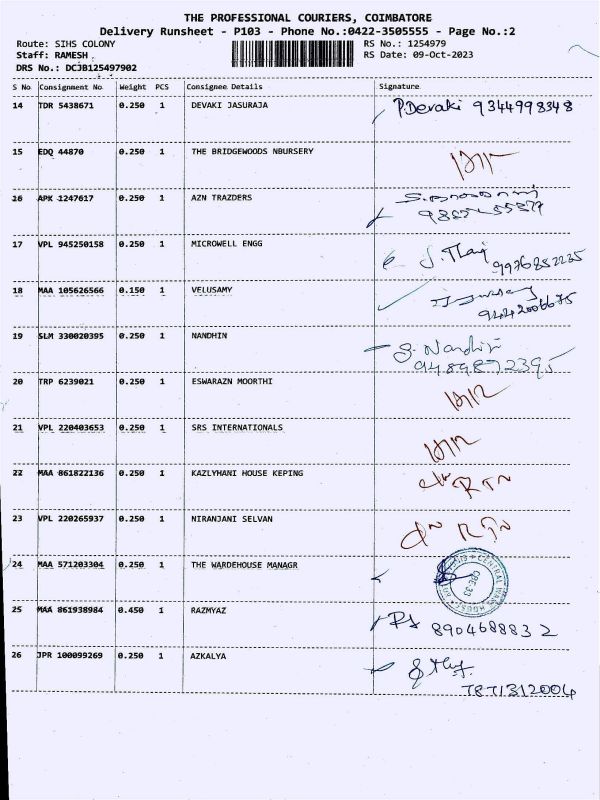 THE PROFESSIONAL COURIERS, COIMBATORE
Delivery Runsheet - P103 - Phone No.:0422-3505555 - Page No.:2
Route: SIHS COLONY RS No.: 1254979
Staff: RAMESH RS Date: 09-Oct-2023
DRS No.: DCJB125497902
S No Consignment No Weight PCS Consignee Details Signature
14 TDR 5438671 0.250 1 DEVAKI JASURAJA P.Devaki 9344998348
15 EDQ 44870 0.250 1 THE BRIDGEWOODS NBURSERY
16 APK 1247617 0.250 1 AZN TRAZDERS
17 VPL 945250158 0.250 1 MICROWELL ENGG
18 MAA 105626566 0.150 1 VELUSAMY
19 SLM 330020395 0.250 1 NANDHIN
9489872395
20 TRP 6239021 0.250 1 ESWARAZN MOORTHI
21 VPL 220403653 0.250 1 SRS INTERNATIONALS
22 MAA 861822136 0.250 1 KAZLYHANI HOUSE KEPING RTN
23 VPL 220265937 0.250 1 NIRANJANI SELVAN RTN
24 MAA 571203304 0.250 1 THE WARDEHOUSE MANAGR
25 MAA 861938984 0.450 1 RAZMYAZ
8904688832
26 JPR 100099269 0.250 1 AZKALYA
7871312004